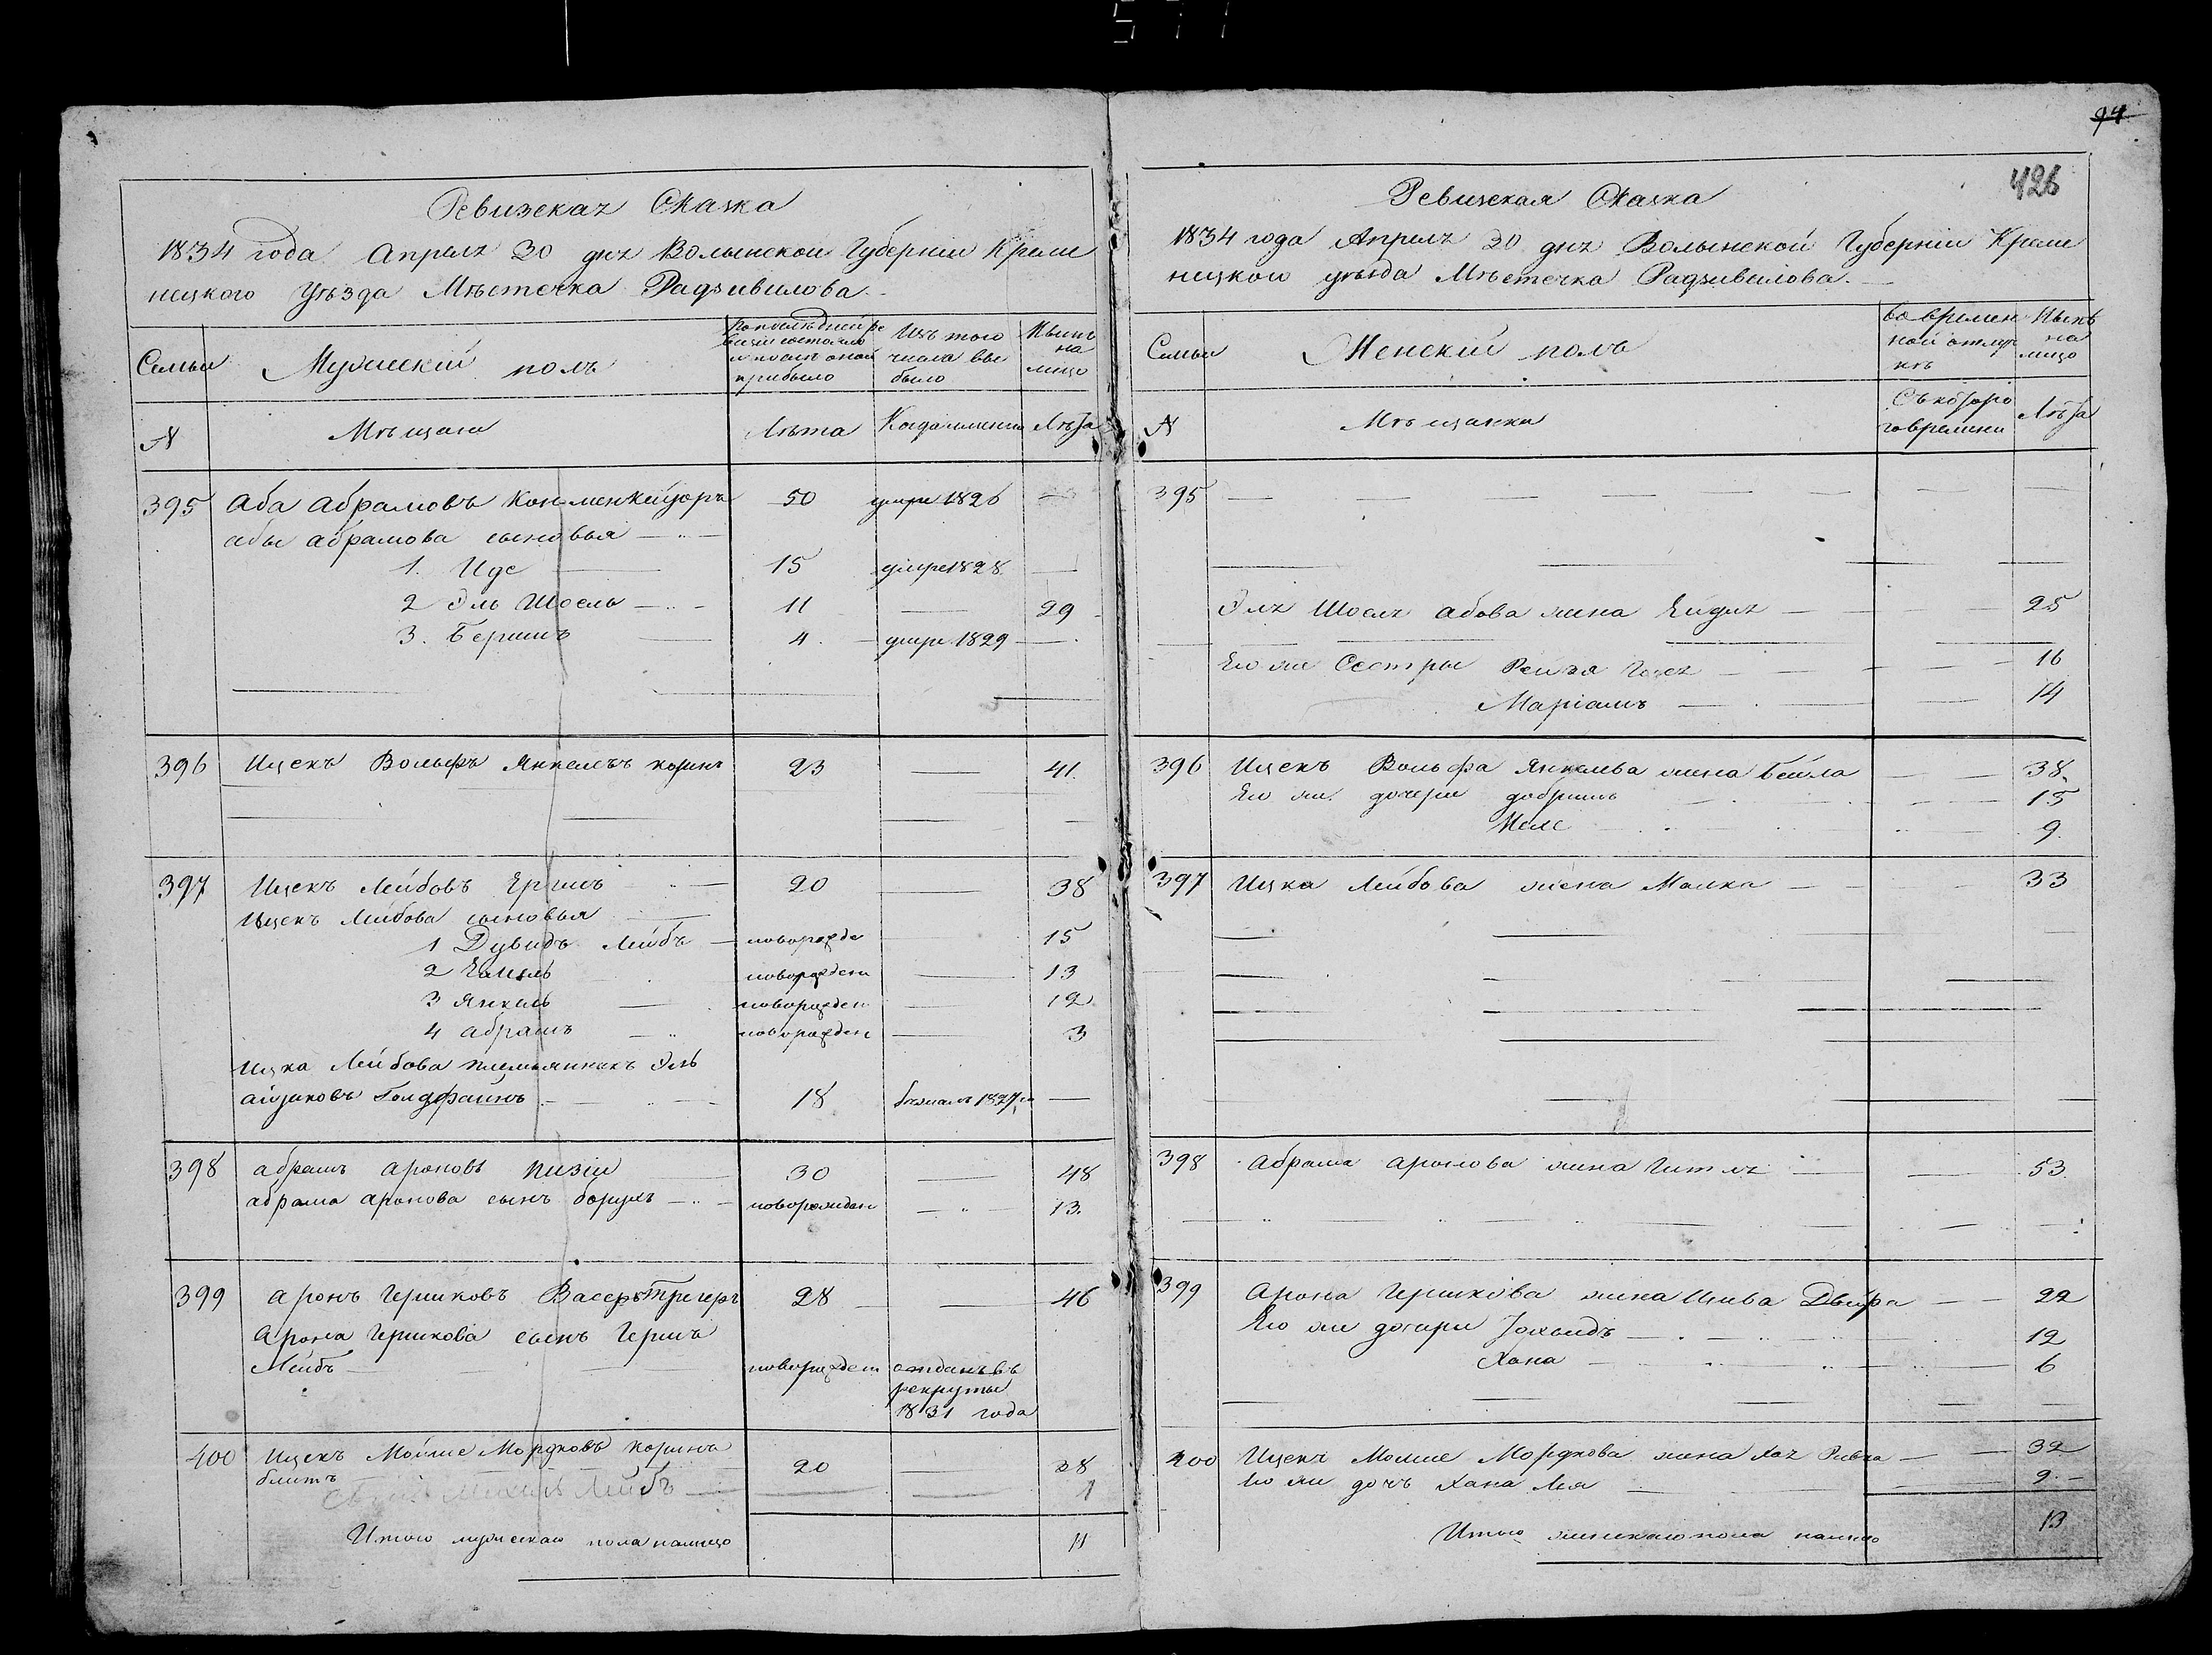 Ревизская Сказка
1834 года Апреля 20 дня Волынской Губернии Креме
нецкого Уѣзда Мѣстечка Радзивилова
Семьи
Мужескій полъ
по послѣдней ре
визіи состояло
и послѣ оной
прибыло
Изъ того
числа вы
было
Нынѣ
на
лицо
№
Мѣщане
Лѣта
Когда именно
Лѣта
395 Аба Абрамовъ 50 умре 1826 —
абы абрамова сыновья
1. Иде 15 умре 1828 —
2 Эль Шоель 11 — 29
3. Бершъ 4 — умре 1829 —
396 Ицекъ Вольфъ Янкелевъ коринъ 23 — 41
397 Ицекъ Лейбовъ 20 — 38
Ицекъ Лейбова сыновья
1 Дувидъ Лейбъ — новорожде 15
2 новорожден — 13
3 Янкель новорожден — 12
4 абрамъ новорожден — 3
Ицка Лейбова племянникъ Эль
айзиковъ Голдфаинъ 18 бежалъ 1827 —
398 абрамъ ароновъ пизій 30 — 48
абрама аронова сынъ борухъ новорожден — 13.
399 аронъ Гершковъ Васертрегеръ 28 — 46
Арона Гершкова сынъ Гершъ
Лейбъ новорожден отданъ въ
рекруты
1831 года
400 Ицекъ Мойше Мордковъ коринъ
блитъ 20 — 28
Лейбъ — 1
Итого мужескаго пола налицо 11
94
426
Ревизская Сказка
1834 года Апреля 20 дня Волынской Губерніи Креме
нецкой уѣзда Мѣстечка Радзивилова.
Семьи
Женскій полъ
во времен
ной отлуч
кѣ
Нынѣ
на
лицо
№
Мѣщанки
Съ котоpo
го времени
Лѣта
395 — — — — — — —
Эля Шоеля абова жена Ейдля — 25
Его же Сестры Рейзя — 16
Маріамъ — 14
396 Ицекъ Вольфа Янкелева жена Бейла — 38.
Его же дочери добришъ — 15
9.
397 Ицка Лейбова жена Малка — 33
398 Абрама аронова жена Гитля — 53.
399 Арона Гершкова жена Цивa Двейра — 22
Его же дочери 12
Хана — 6
400 Ицекъ Мошие Мордкова жена Хая Ривка — 32
Его же дочь Хана Лея — 9
Итого женскаго пола налицо 13